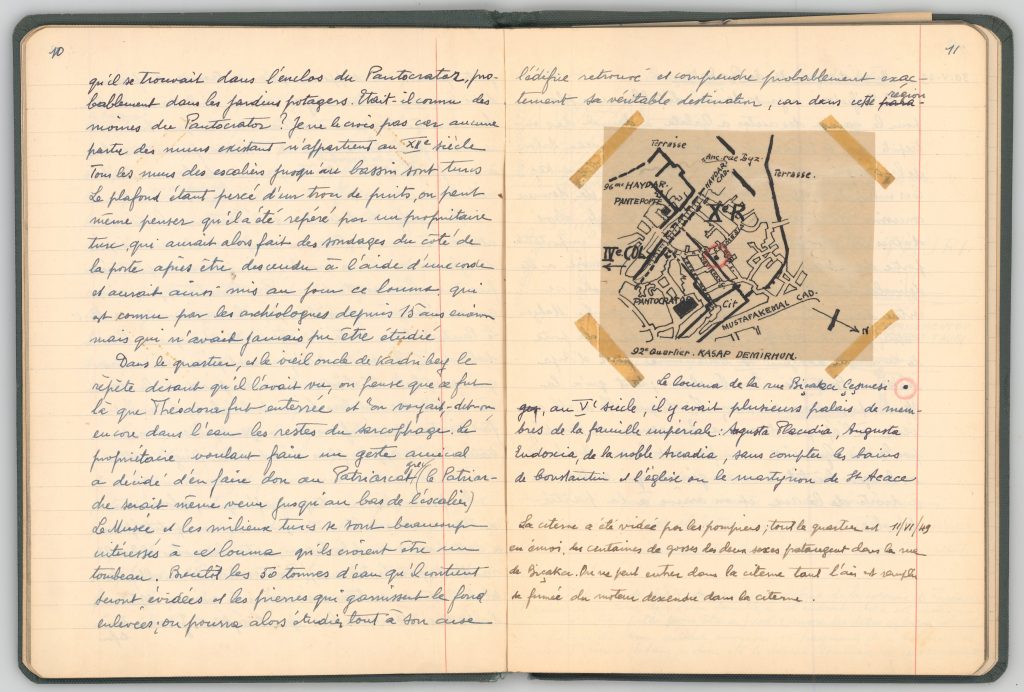 10
qu'il se trouvait dans l'enclos du Pantocrator, pro-
bablement dans les jardins potagers. Etait-il connu des
moines du Pantocrator ? Je ne le crois pas car aucune
partie des murs existant n'appartient au XIIe siècle
Tous les murs des escaliers jusqu'au bassin sont turcs
Le plafond étant percé d'un trou de puits, on peut
même penser qu'il a été repéré par un propriétaire
turc, qui aurait alors fait des sondages du côté de
la porte après être descendu à l'aide d'une corde
et aurait ainsi mis au jour ce louma, qui
est connu par les archéologues depuis 15 ans environ
mais qui n'avait jamais pu être étudié
Dans le quartier, et le vieil oncle de Kadri bey le
répète disant qu'il l'avait vu, on pense que ce fut
là que Théodora fut enterrée et "on voyait-dit-on
encore dans l'eau les restes du sarcophage. Le
propriétaire voulant faire un geste amical
a décidé d'en faire don au Patriarcat grec (le Patriar-
che serait même venu jusqu'au bas de l'escalier)
Le Musée et les milieux turcs se sont beaucoup
intéressés à ce louma qu'ils croient être un
tombeau. Bientôt les 50 tonnes d'eau qu'il contient
seront évidées et les pierres qui garnissent le fond
enlevées; on pourra alors étudier tout à son aise
11
l'édifice retrouvé et comprendre probablement exac-
tement sa véritable destination, car dans cette région
Terrasse
Anc. rue Toyz.
Terrasse.
96me HAYDAR.
HAYDAR. CAD.
PANTEPOPTE
XeR
IVe COL
PANTOCRATOR
Cit
MUSTAFAKEMAL CAD.
N
92e Quartier. KASAP DEMIRHUN.
Le louma de la rue Biçakcı Çeşmesi
au Ve siècle, il y avait plusieurs palais de mem-
bres de la famille impériale: Augusta Placidia, Augusta
Eudoxia, de la noble Arcadia, sans compter les bains
de Constantin et l'église ou le martyrion de St Acace
La citerne a été vidée par les pompiers; tout le quartier est 11/VI/49
en émoi, des centaines de gosses des deux sexes pataugent dans la rue
de Biçakcı. On ne peut entrer dans la citerne tant l'air est rempli
de fumée du moteur descendu dans la citerne.